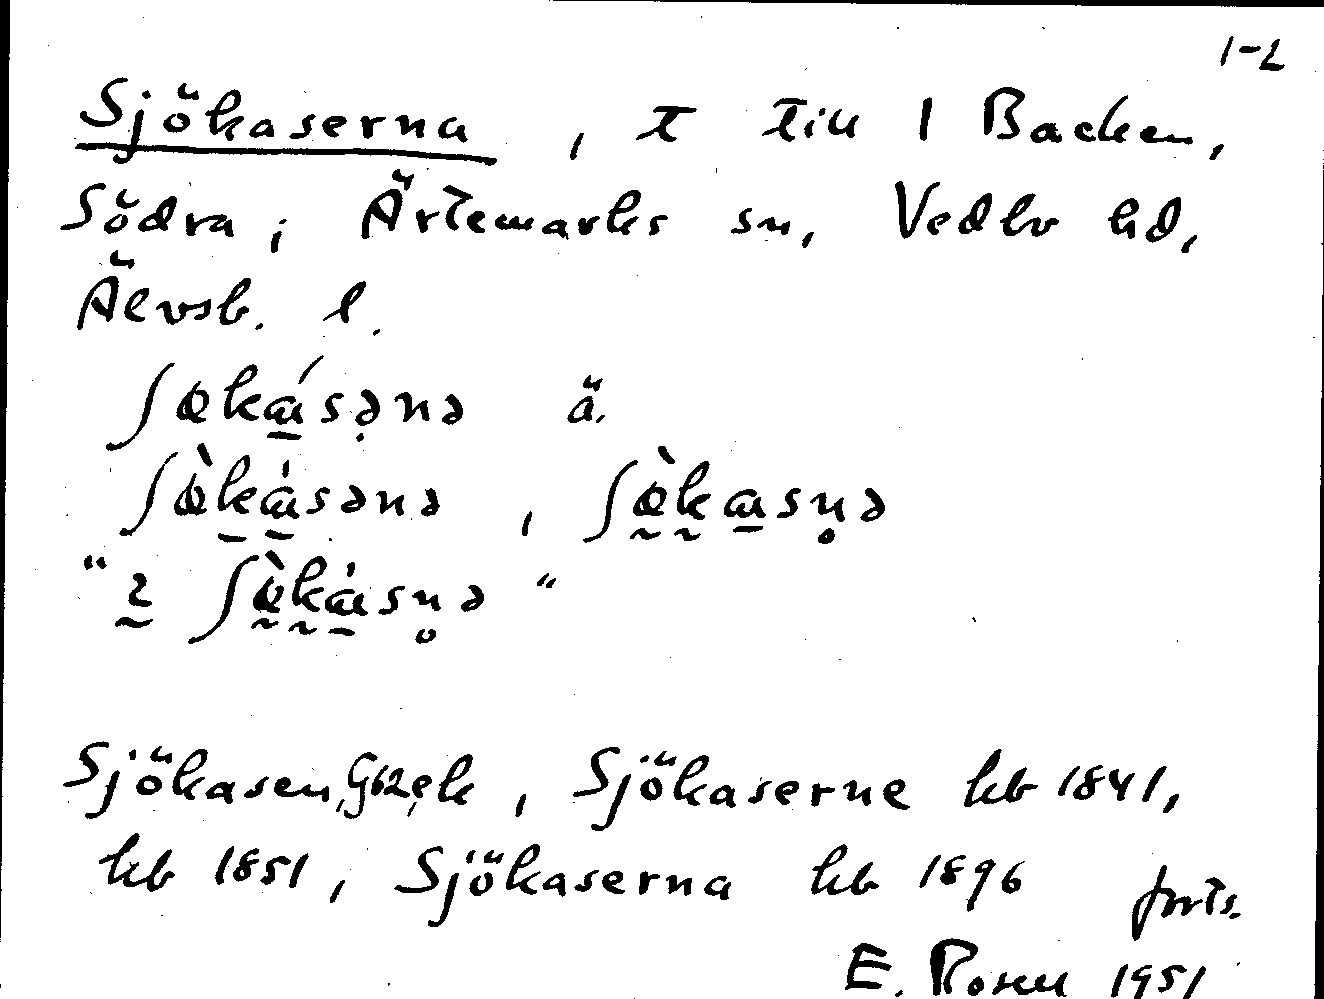 1-2
Sjökaserna, t till 1 Backen,
Södra; Ärtemarks sn, Vedbo hd,
Älvsb. l.
ʃøkásənə ä.
ʃø̀kásənə, ʃø̀kasn̥ə
ʃø̀kásn̥ə
Sjökasen, ek, Sjökaserne kb 1841,
kb 1851, Sjökaserna kb 1896 forts.
E. Rosell 1951